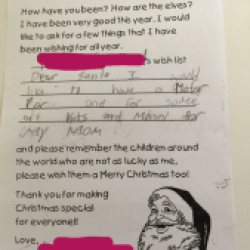 How have you been? How are the elves?
I have been very good this year. I would
like to ask for a few things that I have
been wishing for all year.
's wish list
Dear Santa I would
like to have a Motor
Car and for some
Kuts and Money for
MY MOM
and please remember the children around
the world who are not as lucky as me,
please wish them a Merry Christmas too!
Thank you for making
Christmas special
for everyone!!
Love,